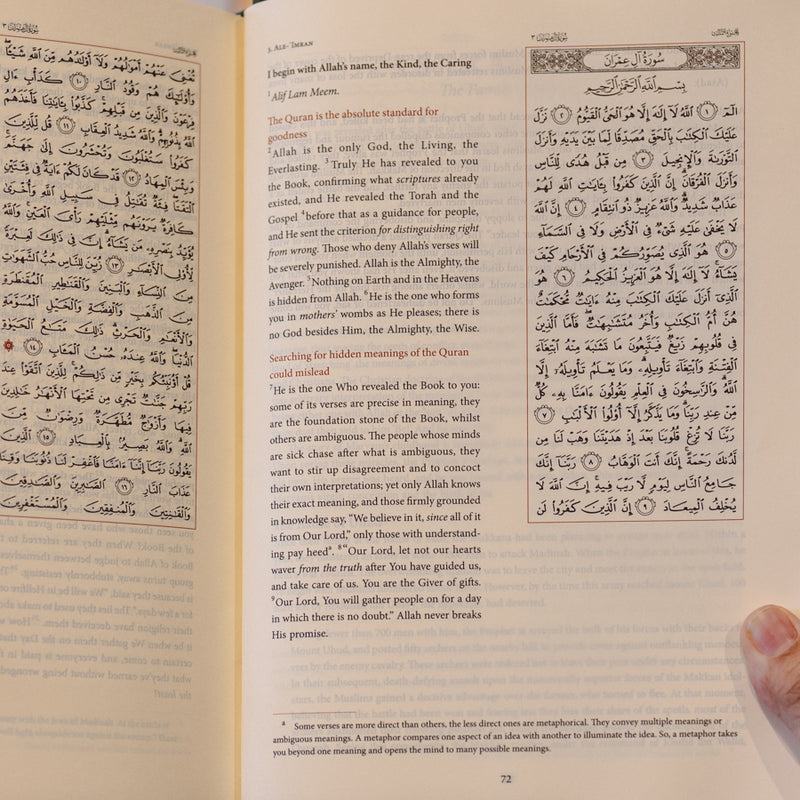 تُغْنِىَ عَنْهُمْ أَمْوَٰلُهُمْ وَلَآ أَوْلَـٰدُهُم مِّنَ ٱللَّهِ شَيْـًٔا
وَأُو۟لَـٰٓئِكَ هُمْ وَقُودُ ٱلنَّارِ ١٠ كَدَأْبِ ءَالِ
فِرْعَوْنَ وَٱلَّذِينَ مِن قَبْلِهِمْ كَذَّبُوا۟ بِـَٔايَـٰتِنَا فَأَخَذَهُمُ
ٱللَّهُ بِذُنُوبِهِمْ وَٱللَّهُ شَدِيدُ ٱلْعِقَابِ ١١ قُل لِّلَّذِينَ
كَفَرُوا۟ سَتُغْلَبُونَ وَتُحْشَرُونَ إِلَىٰ جَهَنَّمَ
وَبِئْسَ ٱلْمِهَادُ ١٢ قَدْ كَانَ لَكُمْ ءَايَةٌ فِى فِئَتَيْنِ
ٱلْتَقَتَا فِئَةٌ تُقَـٰتِلُ فِى سَبِيلِ ٱللَّهِ وَأُخْرَىٰ
كَافِرَةٌ يَرَوْنَهُم مِّثْلَيْهِمْ رَأْىَ ٱلْعَيْنِ وَٱللَّهُ
يُؤَيِّدُ بِنَصْرِهِۦ مَن يَشَآءُ إِنَّ فِى ذَٰلِكَ لَعِبْرَةً
لِّأُو۟لِى ٱلْأَبْصَـٰرِ ١٣ زُيِّنَ لِلنَّاسِ حُبُّ ٱلشَّهَوَٰتِ
مِنَ ٱلنِّسَآءِ وَٱلْبَنِينَ وَٱلْقَنَـٰطِيرِ ٱلْمُقَنطَرَةِ
مِنَ ٱلذَّهَبِ وَٱلْفِضَّةِ وَٱلْخَيْلِ ٱلْمُسَوَّمَةِ
وَٱلْأَنْعَـٰمِ وَٱلْحَرْثِ ذَٰلِكَ مَتَـٰعُ ٱلْحَيَوٰةِ
ٱلدُّنْيَا وَٱللَّهُ عِندَهُۥ حُسْنُ ٱلْمَـَٔابِ ١٤
قُلْ أَؤُنَبِّئُكُم بِخَيْرٍ مِّن ذَٰلِكُمْ لِلَّذِينَ ٱتَّقَوْا۟ عِندَ
رَبِّهِمْ جَنَّـٰتٌ تَجْرِى مِن تَحْتِهَا ٱلْأَنْهَـٰرُ خَـٰلِدِينَ
فِيهَا وَأَزْوَٰجٌ مُّطَهَّرَةٌ وَرِضْوَٰنٌ مِّنَ
ٱللَّهِ وَٱللَّهُ بَصِيرٌۢ بِٱلْعِبَادِ ١٥ ٱلَّذِينَ
يَقُولُونَ رَبَّنَآ إِنَّنَآ ءَامَنَّا فَٱغْفِرْ لَنَا ذُنُوبَنَا وَقِنَا
عَذَابَ ٱلنَّارِ ١٦ ٱلصَّـٰبِرِينَ وَٱلصَّـٰدِقِينَ
وَٱلْقَـٰنِتِينَ وَٱلْمُنفِقِينَ وَٱلْمُسْتَغْفِرِينَ
3. ALE-'IMRAN
I begin with Allah's name, the Kind, the Caring
¹Alif Lam Meem.
The Quran is the absolute standard for
goodness
²Allah is the only God, the Living, the
Everlasting. ³Truly He has revealed to you
the Book, confirming what scriptures already
existed, and He revealed the Torah and the
Gospel ⁴before that as a guidance for people,
and He sent the criterion for distinguishing right
from wrong. Those who deny Allah's verses will
be severely punished. Allah is the Almighty, the
Avenger. ⁵Nothing on Earth and in the Heavens
is hidden from Allah. ⁶He is the one who forms
you in mothers' wombs as He pleases; there is
no God besides Him, the Almighty, the Wise.
Searching for hidden meanings of the Quran
could mislead
⁷He is the one Who revealed the Book to you:
some of its verses are precise in meaning, they
are the foundation stone of the Book, whilst
others are ambiguous. The people whose minds
are sick chase after what is ambiguous, they
want to stir up disagreement and to concoct
their own interpretations; yet only Allah knows
their exact meaning, and those firmly grounded
in knowledge say, "We believe in it, since all of it
is from Our Lord," only those with understand-
ing pay heedª. ⁸"Our Lord, let not our hearts
waver from the truth after You have guided us,
and take care of us. You are the Giver of gifts.
⁹Our Lord, You will gather people on for a day
in which there is no doubt." Allah never breaks
His promise.
سُورَةُ آلِ عِمْرَانَ
بِسْمِ ٱللَّهِ ٱلرَّحْمَـٰنِ ٱلرَّحِيمِ
الٓمٓ ١ ٱللَّهُ لَآ إِلَـٰهَ إِلَّا هُوَ ٱلْحَىُّ ٱلْقَيُّومُ ٢ نَزَّلَ
عَلَيْكَ ٱلْكِتَـٰبَ بِٱلْحَقِّ مُصَدِّقًا لِّمَا بَيْنَ يَدَيْهِ وَأَنزَلَ
ٱلتَّوْرَىٰةَ وَٱلْإِنجِيلَ ٣ مِن قَبْلُ هُدًى لِّلنَّاسِ
وَأَنزَلَ ٱلْفُرْقَانَ إِنَّ ٱلَّذِينَ كَفَرُوا۟ بِـَٔايَـٰتِ ٱللَّهِ لَهُمْ
عَذَابٌ شَدِيدٌ وَٱللَّهُ عَزِيزٌ ذُو ٱنتِقَامٍ ٤ إِنَّ ٱللَّهَ
لَا يَخْفَىٰ عَلَيْهِ شَىْءٌ فِى ٱلْأَرْضِ وَلَا فِى ٱلسَّمَآءِ
٥ هُوَ ٱلَّذِى يُصَوِّرُكُمْ فِى ٱلْأَرْحَامِ كَيْفَ
يَشَآءُ لَآ إِلَـٰهَ إِلَّا هُوَ ٱلْعَزِيزُ ٱلْحَكِيمُ ٦ هُوَ
ٱلَّذِىٓ أَنزَلَ عَلَيْكَ ٱلْكِتَـٰبَ مِنْهُ ءَايَـٰتٌ مُّحْكَمَـٰتٌ
هُنَّ أُمُّ ٱلْكِتَـٰبِ وَأُخَرُ مُتَشَـٰبِهَـٰتٌ فَأَمَّا ٱلَّذِينَ
فِى قُلُوبِهِمْ زَيْغٌ فَيَتَّبِعُونَ مَا تَشَـٰبَهَ مِنْهُ ٱبْتِغَآءَ
ٱلْفِتْنَةِ وَٱبْتِغَآءَ تَأْوِيلِهِۦ وَمَا يَعْلَمُ تَأْوِيلَهُۥٓ إِلَّا
ٱللَّهُ وَٱلرَّٰسِخُونَ فِى ٱلْعِلْمِ يَقُولُونَ ءَامَنَّا بِهِۦ كُلٌّ
مِّنْ عِندِ رَبِّنَا وَمَا يَذَّكَّرُ إِلَّآ أُو۟لُوا۟ ٱلْأَلْبَـٰبِ ٧
رَبَّنَا لَا تُزِغْ قُلُوبَنَا بَعْدَ إِذْ هَدَيْتَنَا وَهَبْ لَنَا مِن
لَّدُنكَ رَحْمَةً إِنَّكَ أَنتَ ٱلْوَهَّابُ ٨ رَبَّنَآ إِنَّكَ
جَامِعُ ٱلنَّاسِ لِيَوْمٍ لَّا رَيْبَ فِيهِ إِنَّ ٱللَّهَ لَا
يُخْلِفُ ٱلْمِيعَادَ ٩ إِنَّ ٱلَّذِينَ كَفَرُوا۟ لَن
ª Some verses are more direct than others, the less direct ones are metaphorical. They convey multiple meanings or
ambiguous meanings. A metaphor compares one aspect of an idea with another to illuminate the idea. So, a metaphor takes
you beyond one meaning and opens the mind to many possible meanings.
72